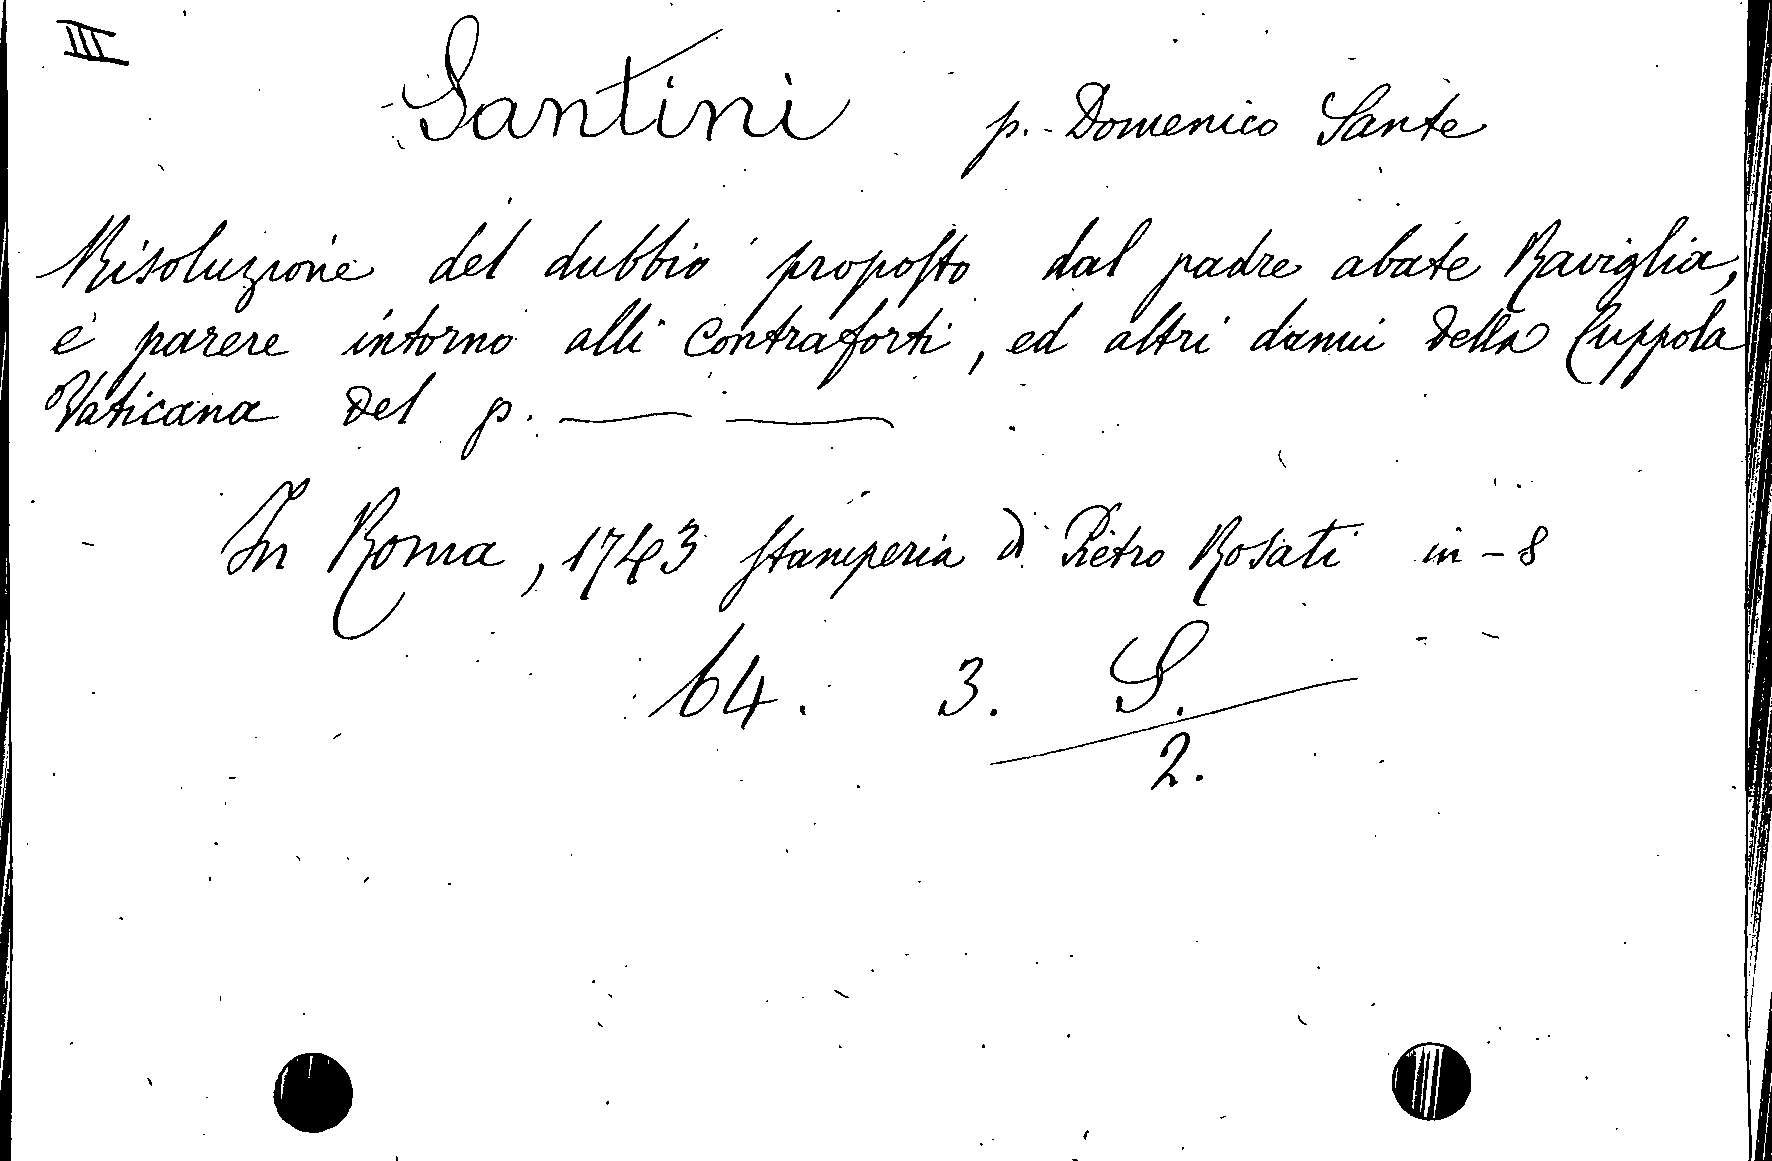 III
Santini p. Domenico Sante
Risoluzione del dubbio proposto dal padre abate Raviglia,
e parere intorno alli contraforti, ed altri danni della Cuppola
Vaticana del p. —— ——
In Roma, 1743 stamperia di Pietro Rosati in-8
64. 3. S.
2.